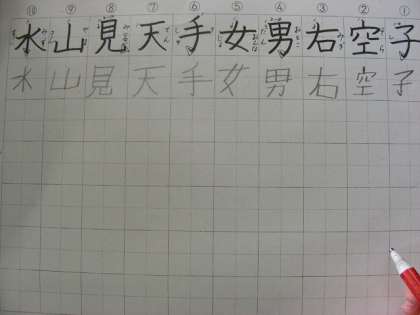 ⑩ ⑨ ⑧ ⑦ ⑥ ⑤ ④ ③ ② ①
水 山 見 天 手 女 男 右 空 子
水 山 見 天 手 女 男 右 空 子